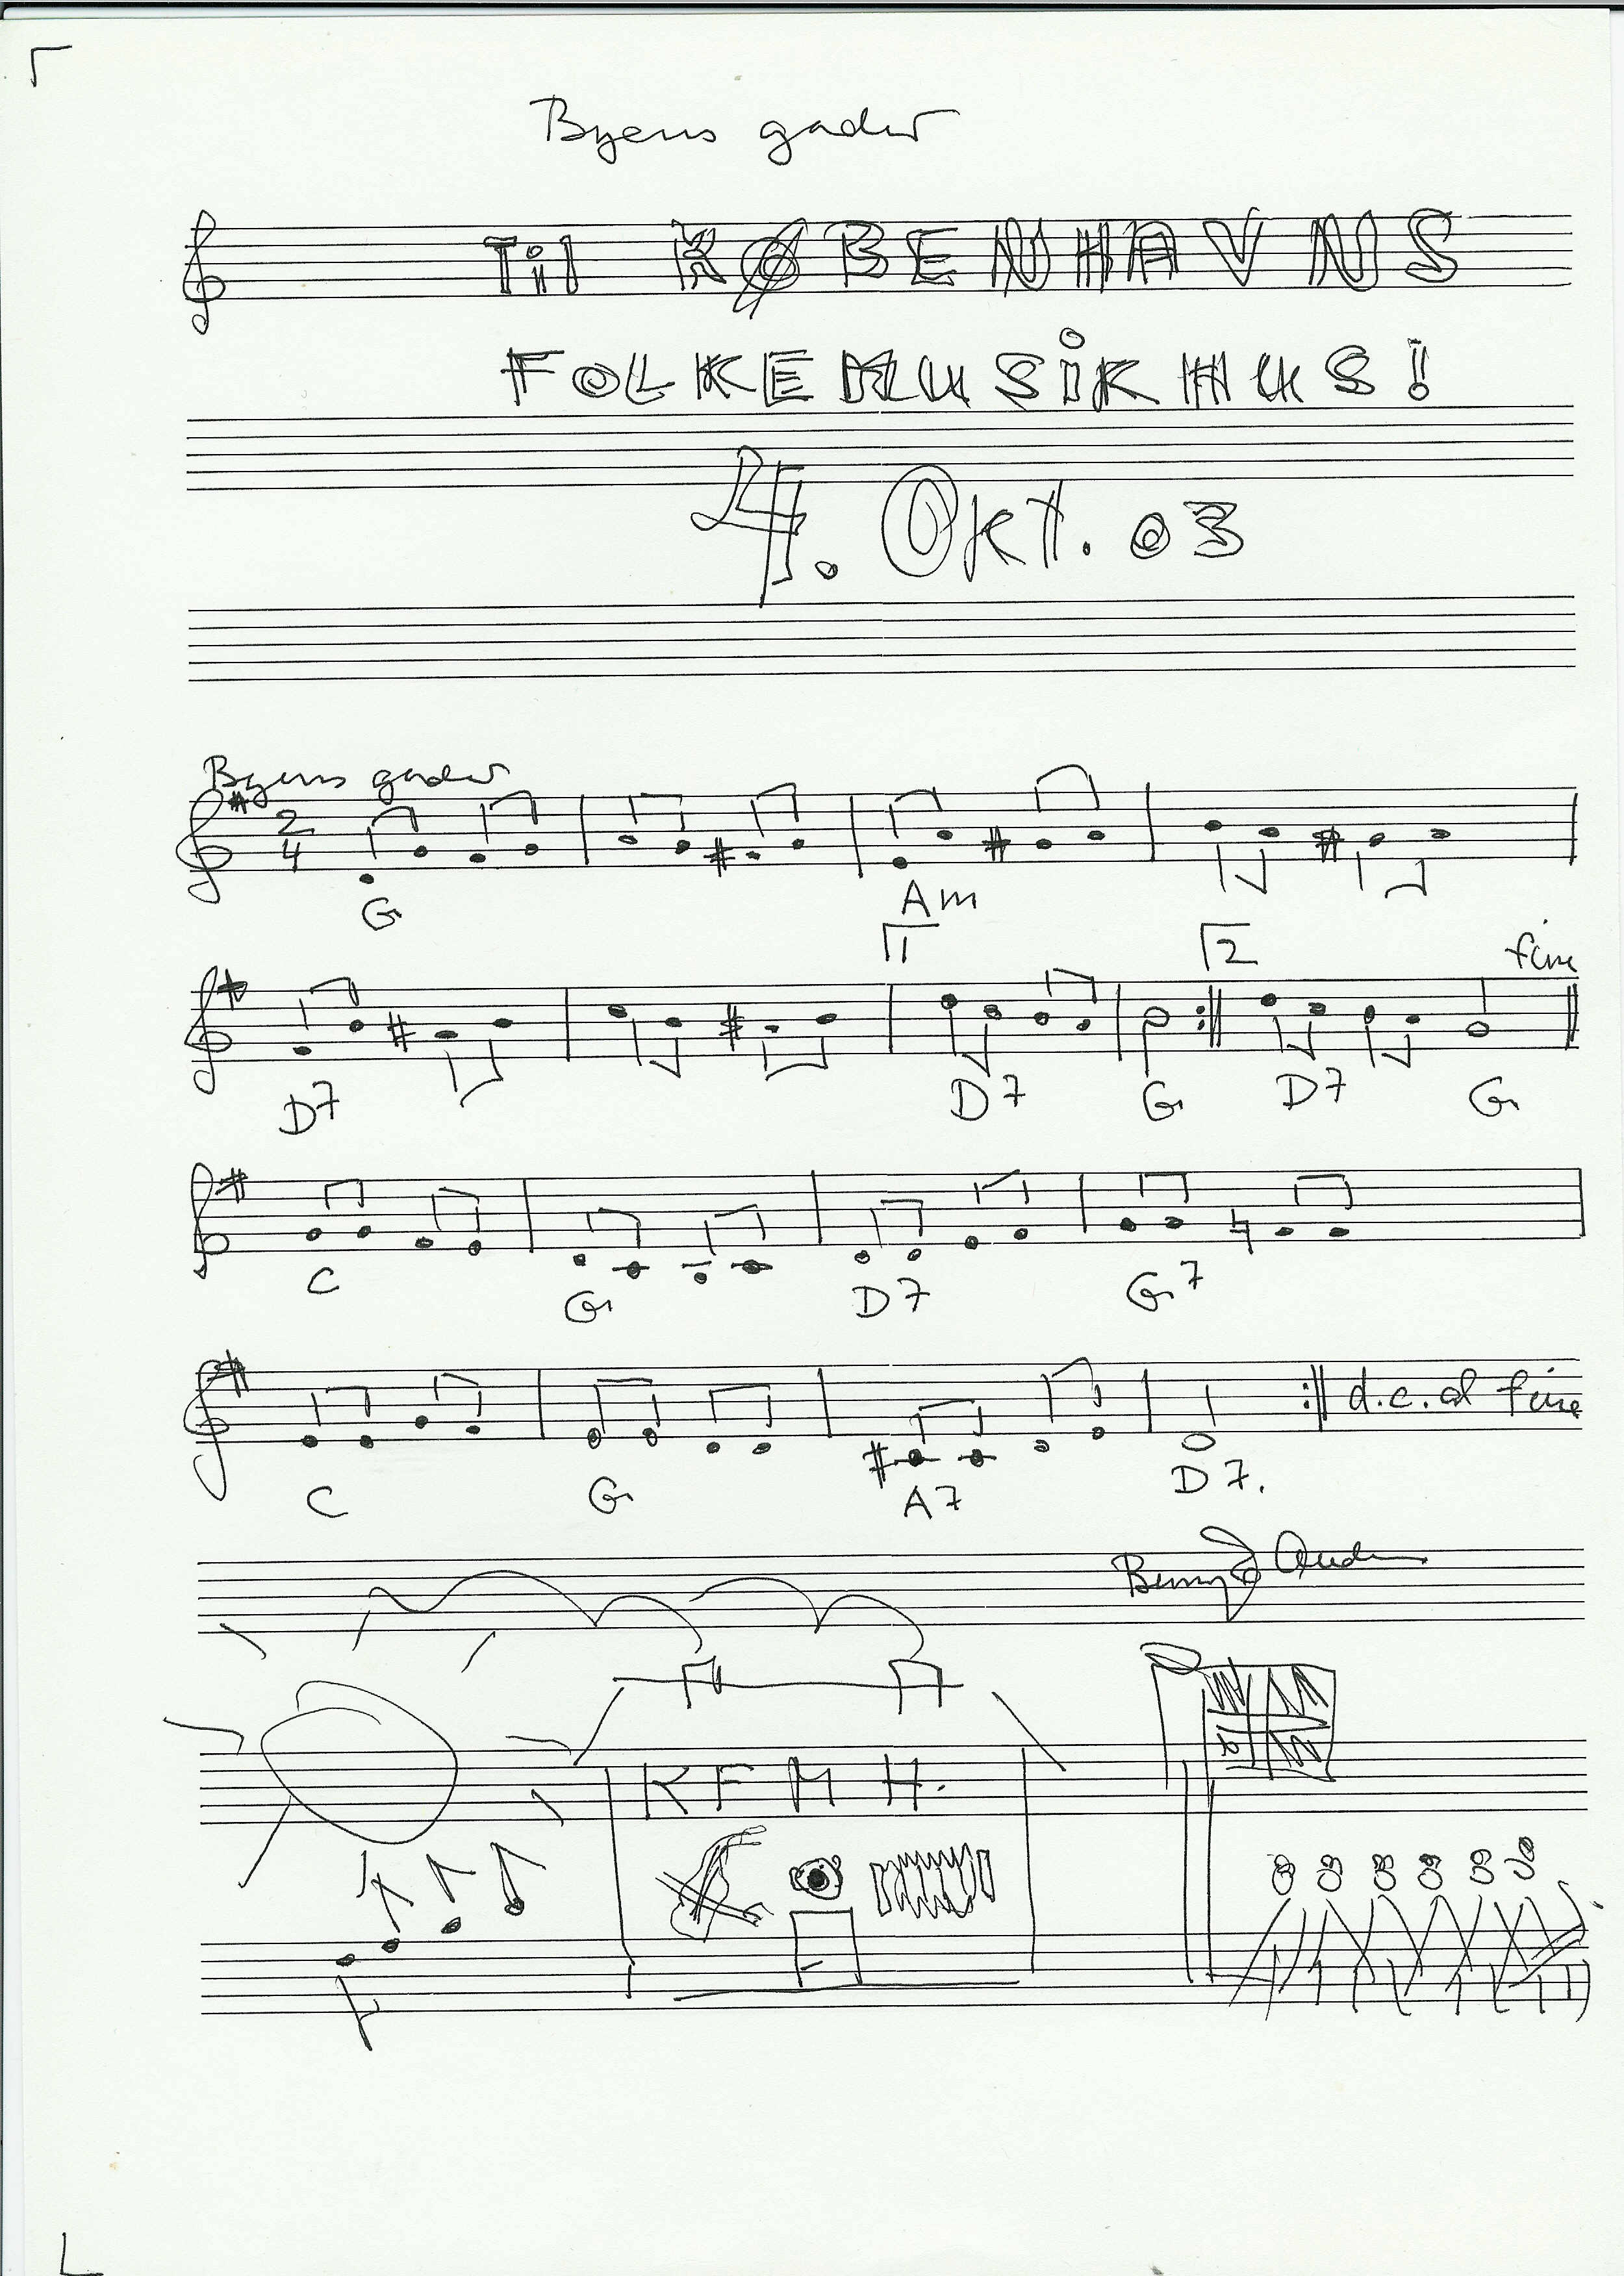 Byens gader
Til KØBENHAVNS
FOLKEMUSIKHUS!
4. Okt. 03
Byens gader
2
4
G Am
1 2 fine
D7 D7 G D7 G
C G D7 G7
d.c. al fine
C G A7 D7.
Benny
KFMH.